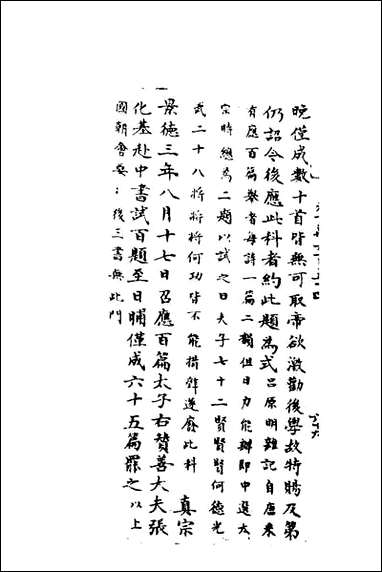 晚僅成數十首皆無可取帝欲激勸後學故特賜及第
仍詔今後應此科者約此題為式呂原明雜記自唐來
有應百篇舉者每詩一篇二韻但日力能辦即中選太
宗時總為二題以試之曰夫子七十二賢賢賢何德光
武二十八將將將何功皆不能措辭遂廢此科
真宗
景德三年八月十七日召應百篇太子右贊善大夫張
化基赴中書試百題至日晡僅成六十五篇罷之以上
國朝會要:後三書無此門